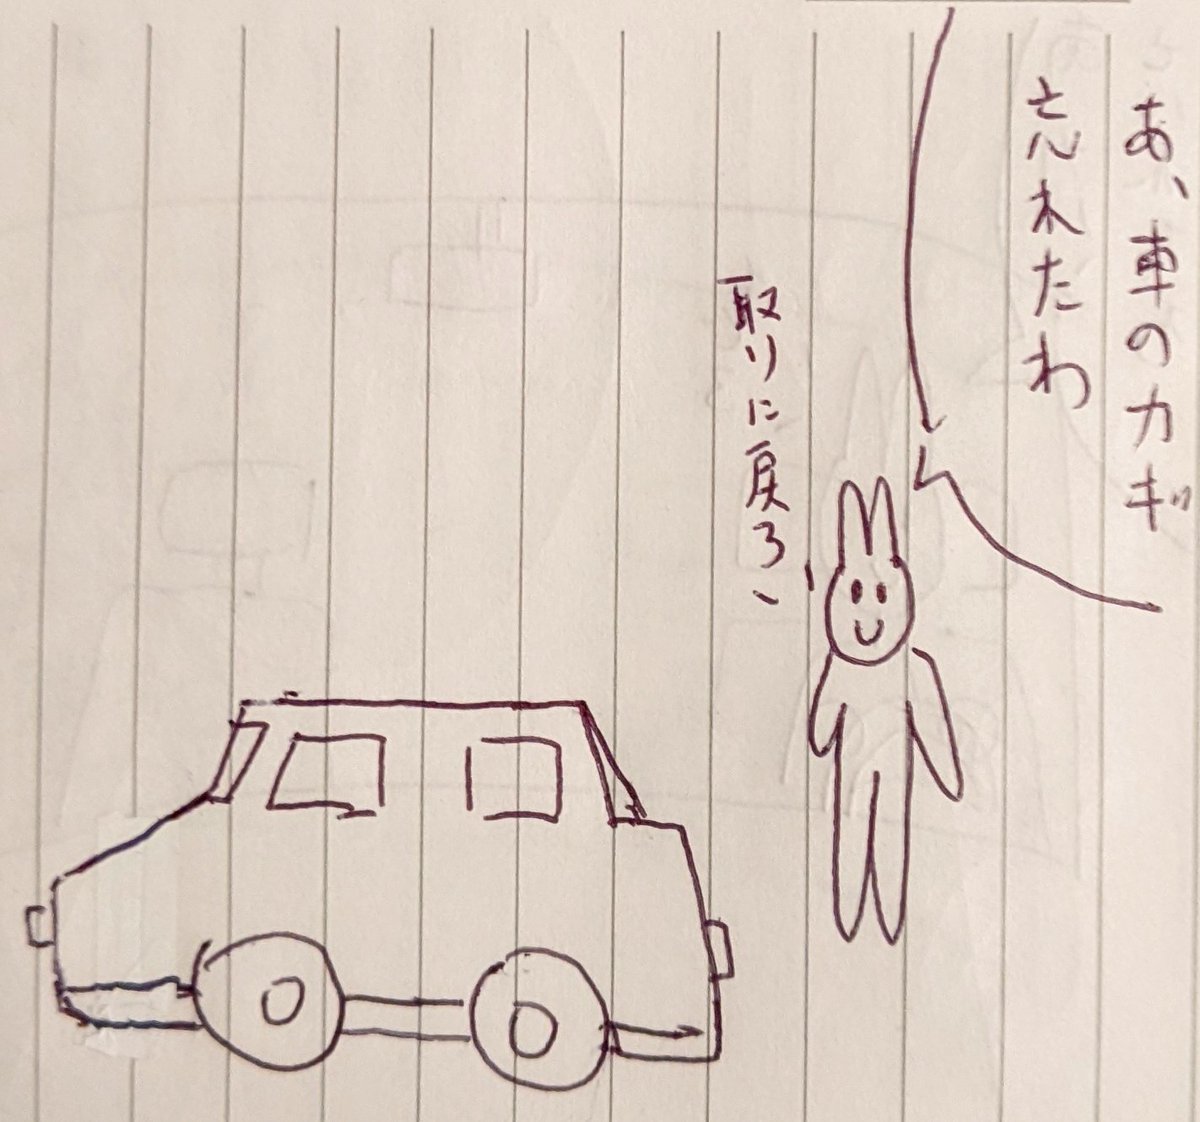 あ、車のカギ
忘れたわ
取りに戻ろ、